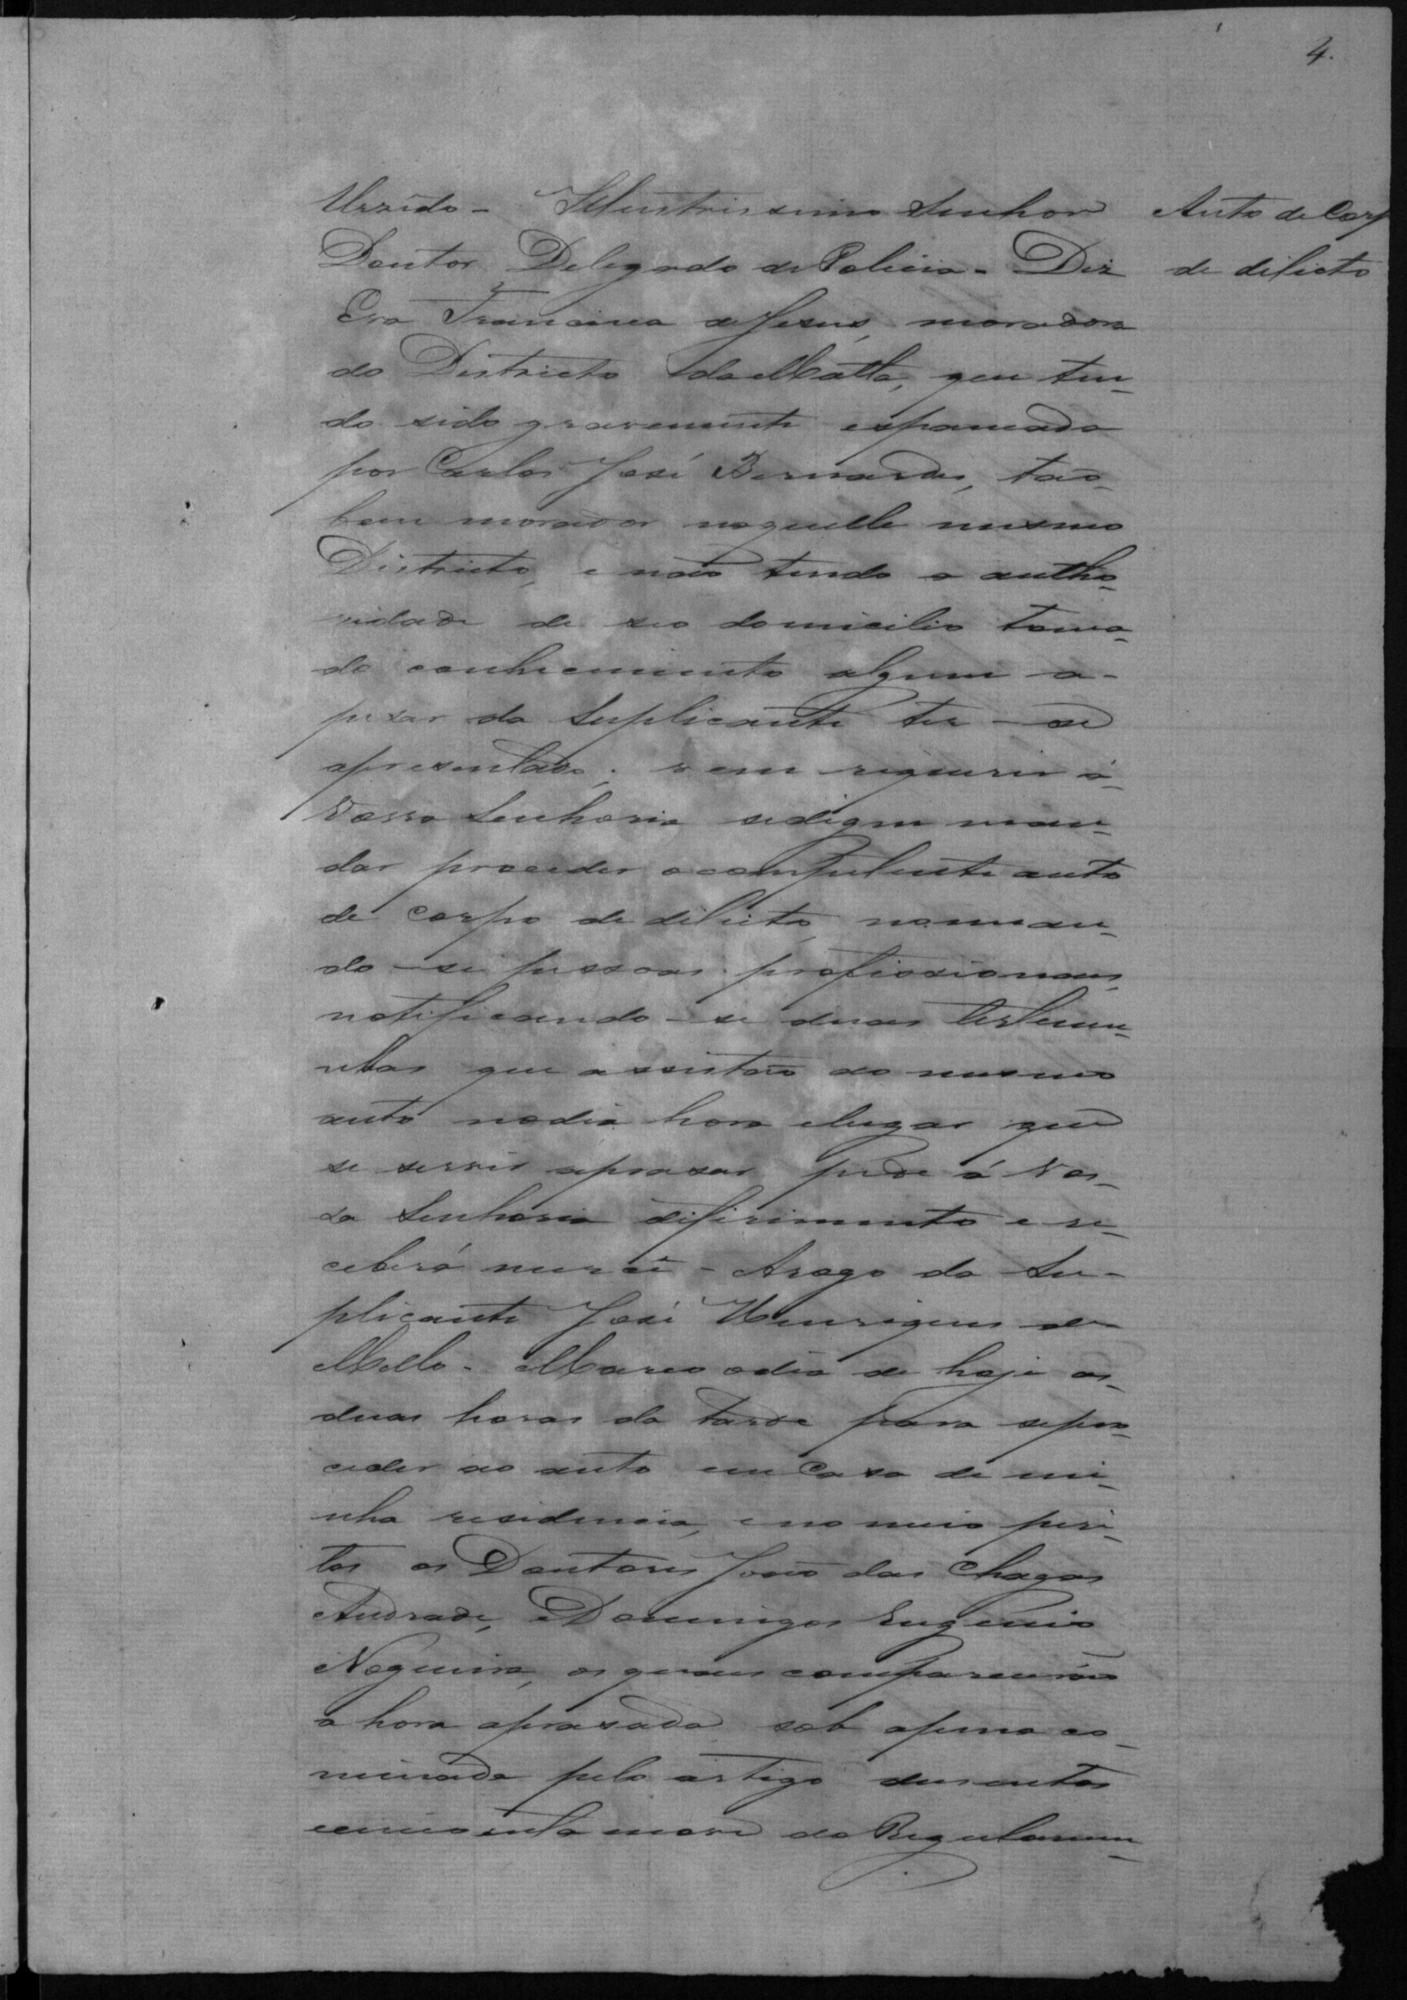 4.
Illustrissimo Senhor
Auto de Corp
Doutor Delegado de Policia - Diz
de delicto
Eva Francisca de Jesus, moradora
do Districto da Matta, que ten-
do sido gravemente espancada
por Carlos José Bernardes, tão-
bem morador naquelle mesmo
Districto, e não tendo a autho-
ridade de seo domicilio toma-
do conhecimento algum a-
pezar da Suplicante ter-se
apresentado; vem requerer á
Vossa Senhoria se digne man-
dar proceder o competente auto
de corpo de delicto, nomean-
do-se pessoas profissionaes,
notificando-se duas testemu-
nhas que assistão ao mesmo
auto no dia hora e lugar que
se servir aprasar, pede á Vos-
sa Senhoria diferimento e re-
ceberá mercê - Arogo da Su-
plicante José Henriques de
Mello - Marco o dia de hoje as
duas horas da tarde para se pro-
ceder ao auto em Casa de mi-
nha residencia, e nomeio peri-
tos os Doutores João das Chagas
Andrade, e Domingos Eugenio
Nogueira, os quaes comparecerão
a hora aprasada sob apena co-
minada pelo artigo dusentos
cincoenta nove do Regulamen-